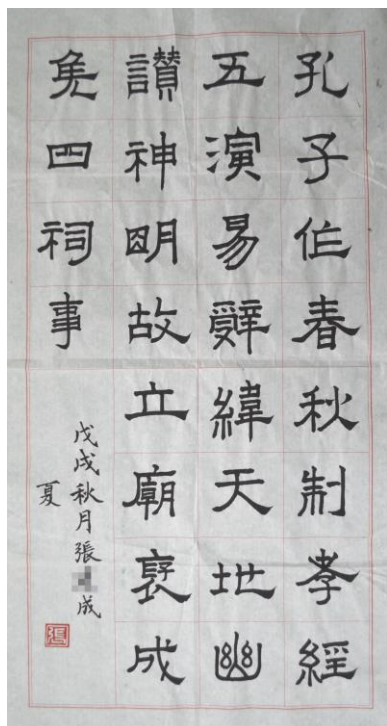 孔子作春秋制孝經
五演易辭緯天地幽
讚神明故立廟褒成
侯四祠事
戊戌秋月張成
夏
張